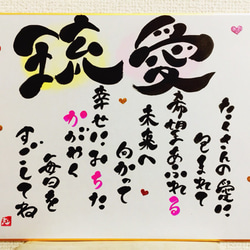 琉愛
たくさんの愛に
包まれて
希望あふれる
未来へ
向かって
幸せにみちた
かがやく
毎日を
すごしてね